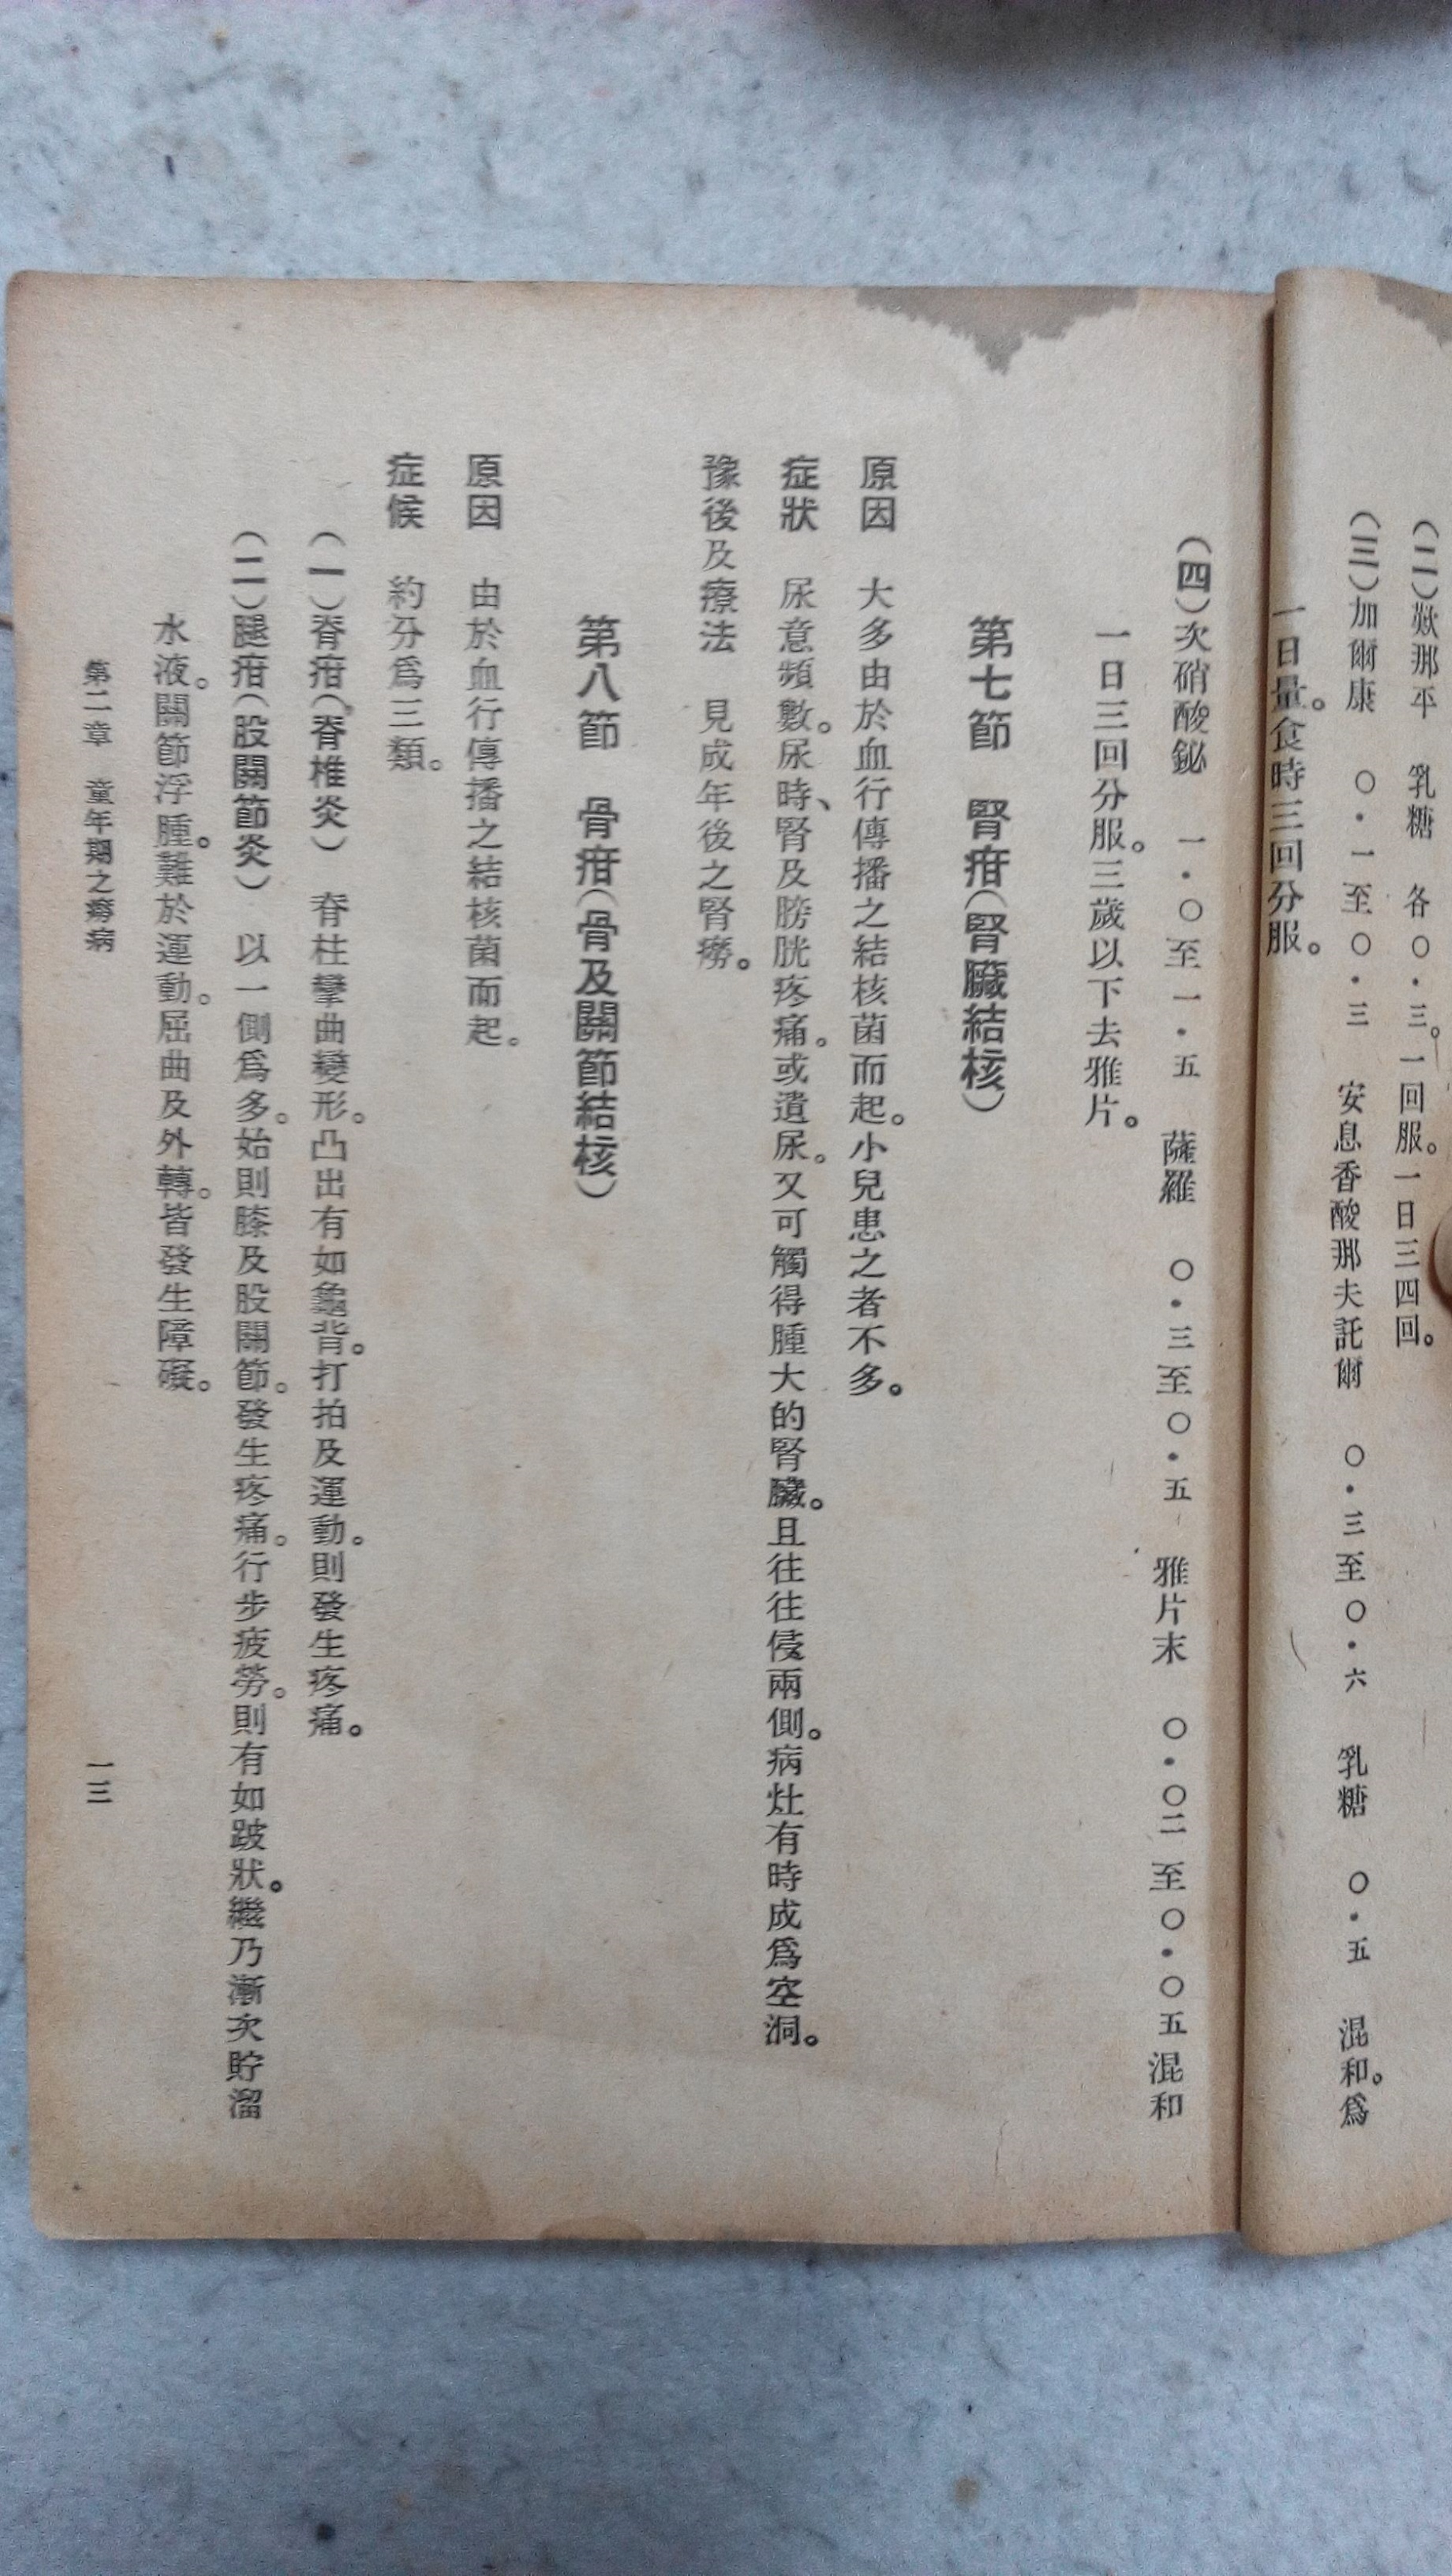 (二)歘那平 乳糖 各〇・三。一回服。一日三四回。
(三)加爾康 〇・一至〇・三 安息香酸那夫託爾 〇・三至〇・六 乳糖 〇・五 混和。爲
一日量。食時三回分服。
(四)次硝酸鉍 一・〇至一・五 薩羅 〇・三至〇・五 雅片末 〇・〇二至〇・〇五混和
一日三回分服。三歲以下去雅片。
第七節 腎疳(腎臟結核)
原因 大多由於血行傳播之結核菌而起。小兒患之者不多。
症狀 尿意頻數。尿時、腎及膀胱疼痛。或遺尿。又可觸得腫大的腎臟。且往往侵兩側。病灶有時成爲空洞。
豫後及療法 見成年後之腎癆。
第八節 骨疳(骨及關節結核)
原因 由於血行傳播之結核菌而起。
症候 約分爲三類。
(一)脊疳(脊椎炎) 脊柱攣曲變形。凸出有如龜背。打拍及運動。則發生疼痛。
(二)腿疳(股關節炎) 以一側爲多。始則膝及股關節。發生疼痛。行步疲勞。則有如跛狀。繼乃漸次貯溜
水液。關節浮腫。難於運動。屈曲及外轉。皆發生障礙。
第二章 童年期之癆病
一三